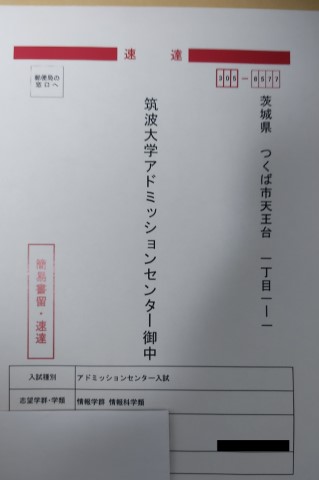 速達
305-8577
郵便局の
窓口へ
茨城県 つくば市天王台 一丁目一ー一
筑波大学アドミッションセンター御中
簡易書留・速達
入試種別 アドミッションセンター入試
志望学群・学類 情報学群 情報科学類